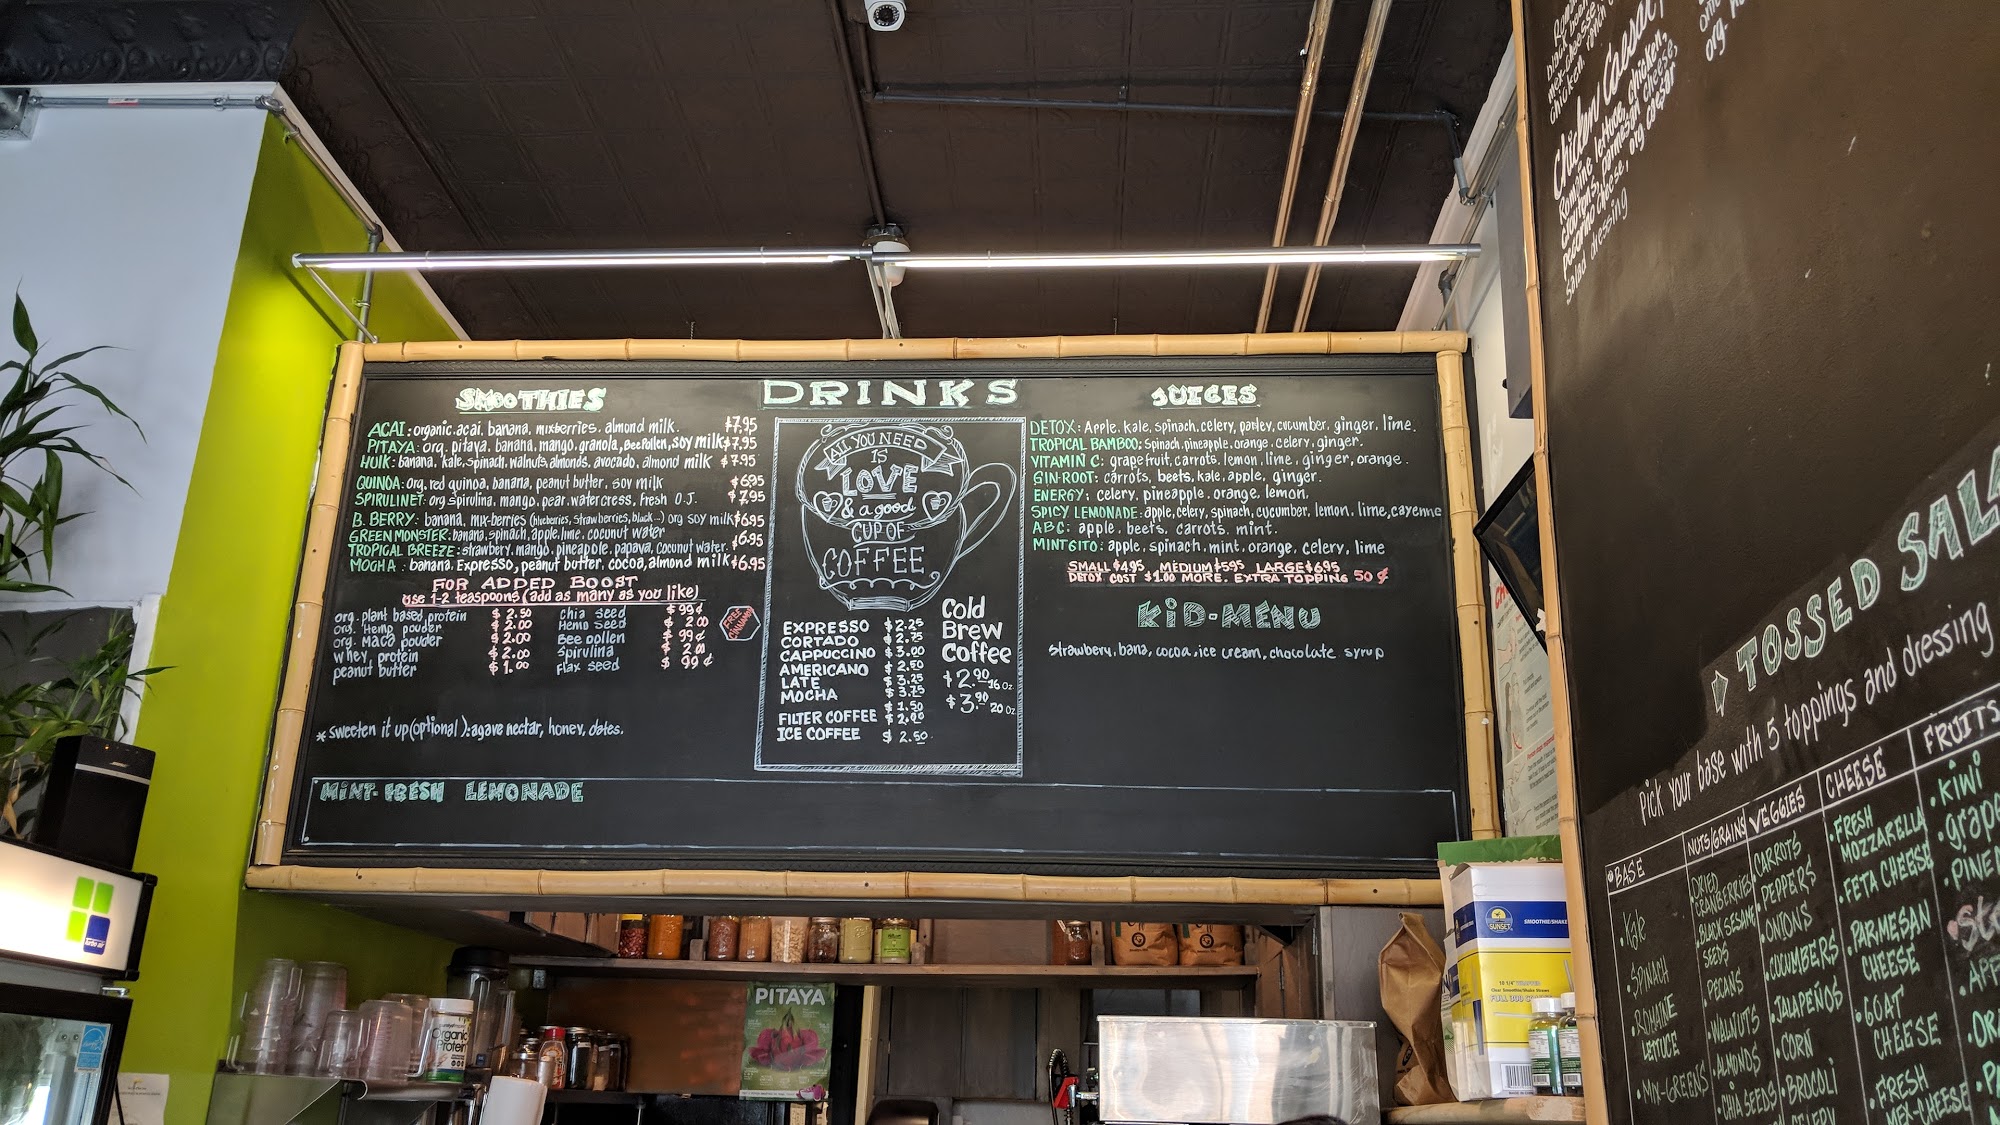 SMOOTHIES
ACAI: organic acai, banana, mixberries, almond milk. $7.95
PITAYA: org. pitaya, banana, mango, granola, Bee Pollen, soy milk $7.95
HULK: banana, kale, spinach, walnuts, almonds, avocado, almond milk $7.95
QUINOA: org. red quinoa, banana, peanut butter, soy milk $6.95
SPIRULINET: org spirulina, mango, pear, watercress, fresh O.J. $7.95
B. BERRY: banana, mix-berries (blueberries, strawberries, black...) org soy milk $6.95
GREEN MONSTER: banana, spinach, apple, lime, coconut water
TROPICAL BREEZE: strawbery, mango, pineapple, papaya, coconut water. $6.95
MOCHA: banana, Expresso, peanut butter, cocoa, almond milk $6.95
FOR ADDED BOOST
use 1-2 teaspoons (add as many as you like)
org. plant based protein $2.50
org. Hemp powder $2.00
org. Maca powder $2.00
whey protein $2.00
peanut butter $1.00
chia seed $99¢
Hemp seed $2.00
Bee pollen $99¢
Spirulina $2.00
flax seed $99¢
FREE
CINNAMON
* sweeten it up (optional): agave nectar, honey, dates.
MINT-FRESH LEMONADE
DRINKS
ALL YOU NEED
IS
LOVE
& a good
CUP OF
COFFEE
EXPRESSO $2.25
CORTADO $2.75
CAPPUCCINO $3.00
AMERICANO $2.50
LATE $3.25
MOCHA $3.75
$1.50
FILTER COFFEE $2.00
ICE COFFEE $2.50
Cold
Brew
Coffee
$2.90 16 oz
$3.90 20 oz
JUICES
DETOX: Apple, kale, spinach, celery, parsley, cucumber, ginger, lime.
TROPICAL BAMBOO: Spinach, pineapple, orange, celery, ginger.
VITAMIN C: grapefruit, carrots, lemon, lime, ginger, orange.
GIN-ROOT: carrots, beets, kale, apple, ginger.
ENERGY: celery, pineapple, orange, lemon.
SPICY LEMONADE: apple, celery, spinach, cucumber, lemon, lime, cayenne
ABC: apple, beets, carrots, mint.
MINTGITO: apple, spinach, mint, orange, celery, lime
SMALL $4.95 MEDIUM $5.95 LARGE $6.95
DETOX COST $1.00 MORE. EXTRA TOPPING 50¢
KID-MENU
strawbery, bana, cocoa, ice cream, chocolate syrup
chicken.
Chicken Caesar
Romaine lettuce, chicken,
croutons, parmesan cheese,
pecorino cheese, org caesar
salad dressing
TOSSED SAL
Pick your base with 5 toppings and dressing
BASE
• Kale
• SPINACH
• ROMAINE
LETTUCE
• MIX-GREENS
NUTS/GRAINS
DRIED
CRANBERRIES
• BLACK SESAME
SEEDS
• PECANS
• WALNUTS
• ALMONDS
• CHIA SEEDS
VEGGIES
• CARROTS
• PEPPERS
• ONIONS
• CUCUMBERS
• JALAPEÑOS
• CORN
• BROCOLI
CELERY
CHEESE
• FRESH
MOZZARELLA
• FETA CHEESE
• PARMESAN
CHEESE
• GOAT
CHEESE
• FRESH
MEX-CHEESE
FRUITS
• KIWI
• grape
• PINE
PITAYA
Organic
Protein
SUNSET
SMOOTHIE/SHAKE
turbo air